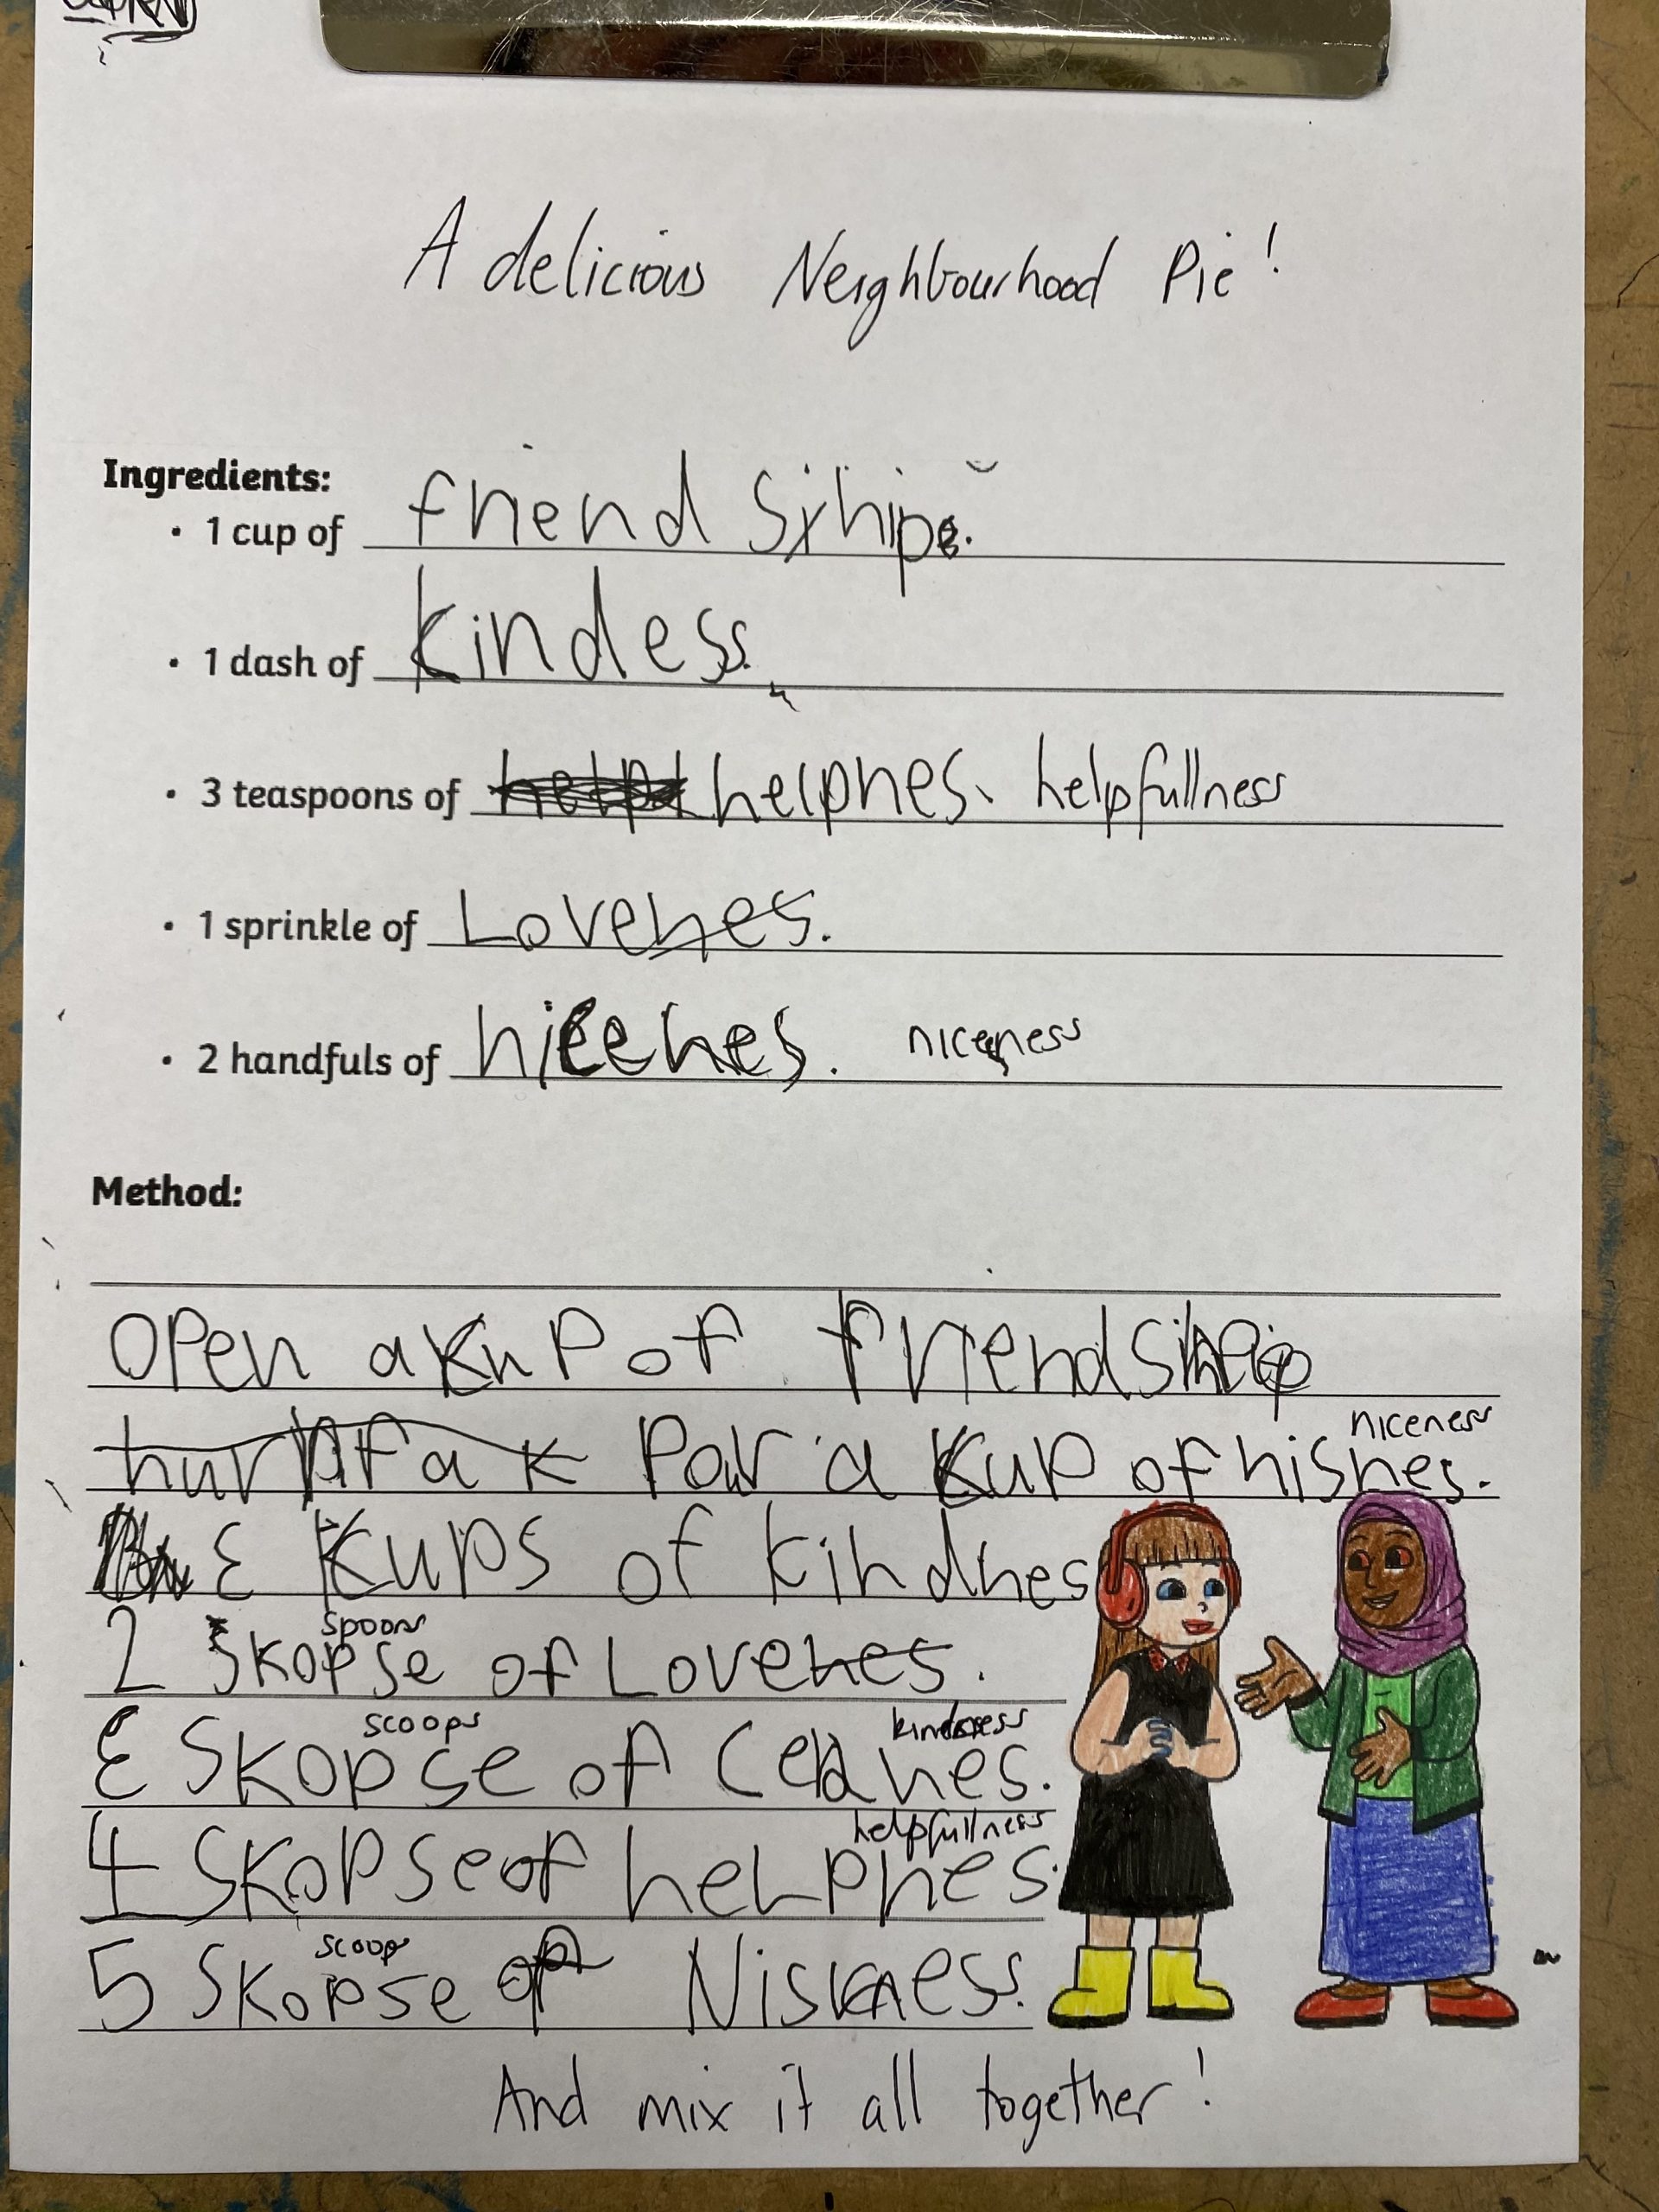 A delicious Neighbourhood Pie!
Ingredients:
• 1 cup of friend sihip.
• 1 dash of kindess.
• 3 teaspoons of helpnes. helpfullness
• 1 sprinkle of Lovenes.
• 2 handfuls of nicenes. niceness
Method:
open a kup of friendship
niceness
Pour a kup of nisnes.
3 kups of kindnes
spoons
2 skopse of Lovenes.
scoops kindness
3 skopse of nes.
helpfullness
4 skopse of helpnes.
scoops
5 skopse of Niskness.
And mix it all together!